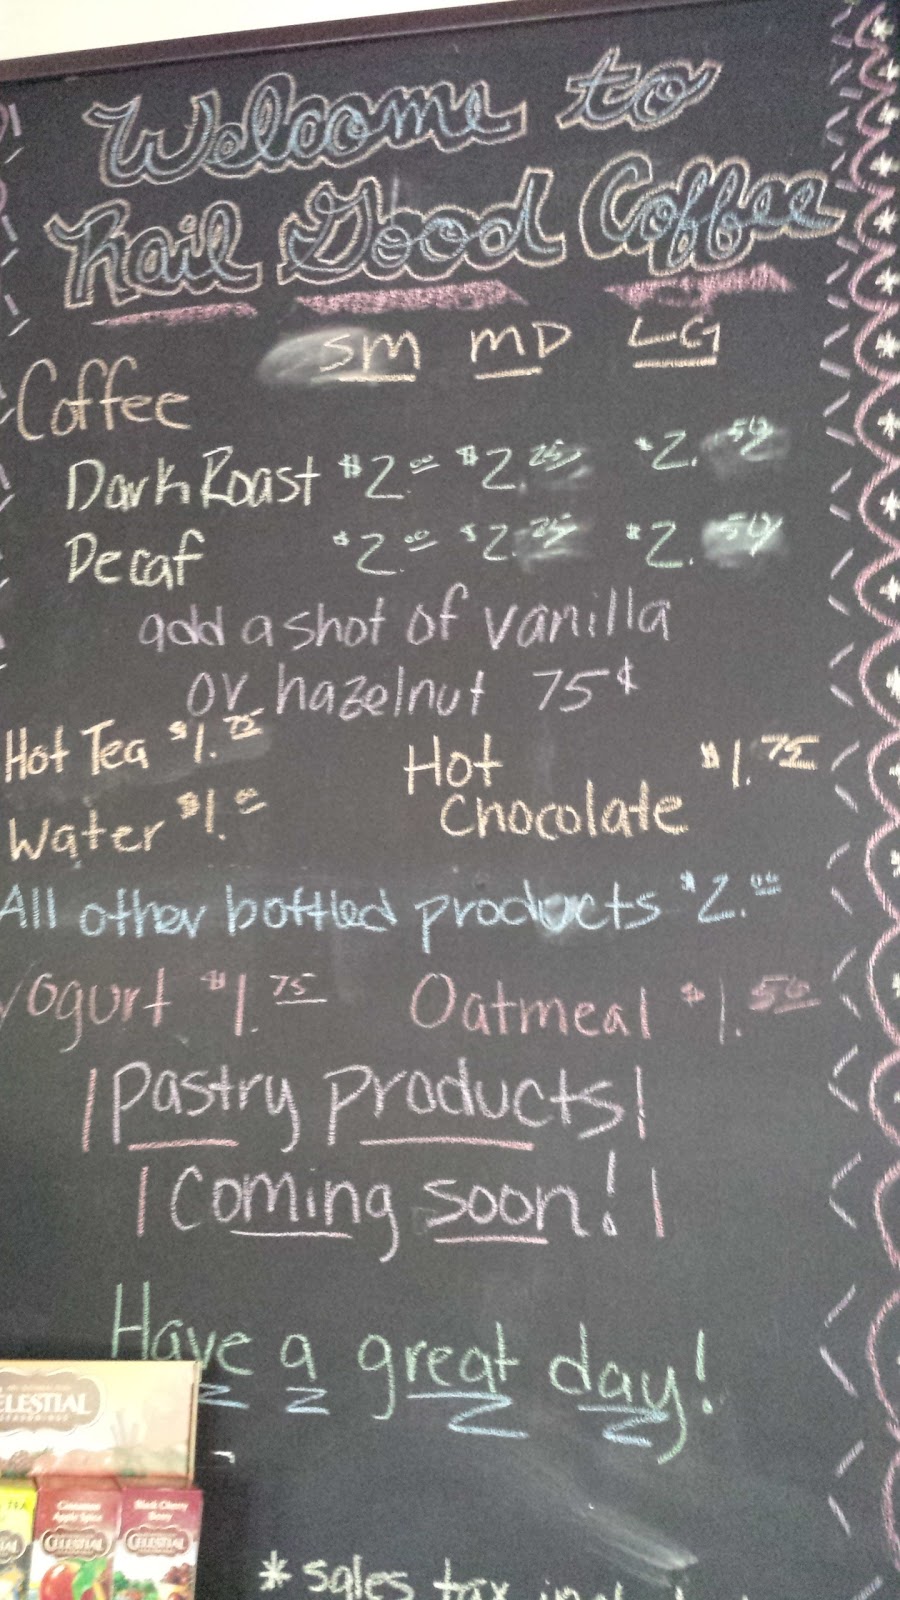 Welcome to
Rail Good Coffee
SM MD LG
Coffee
Dark Roast $2.00 $2.25 $2.50
Decaf $2.00 $2.25 $2.50
add a shot of vanilla
or hazelnut 75¢
Hot Tea $1.75 Hot Chocolate $1.75
Water $1.00
All other bottled products $2.00
Yogurt $1.75 Oatmeal $1.50
Pastry products
Coming soon!
Have a great day!
CELESTIAL
SEASONINGS
TEA
Cinnamon
Apple Spice
CELESTIAL
Black Cherry
Berry
CELESTIAL
* sales tax